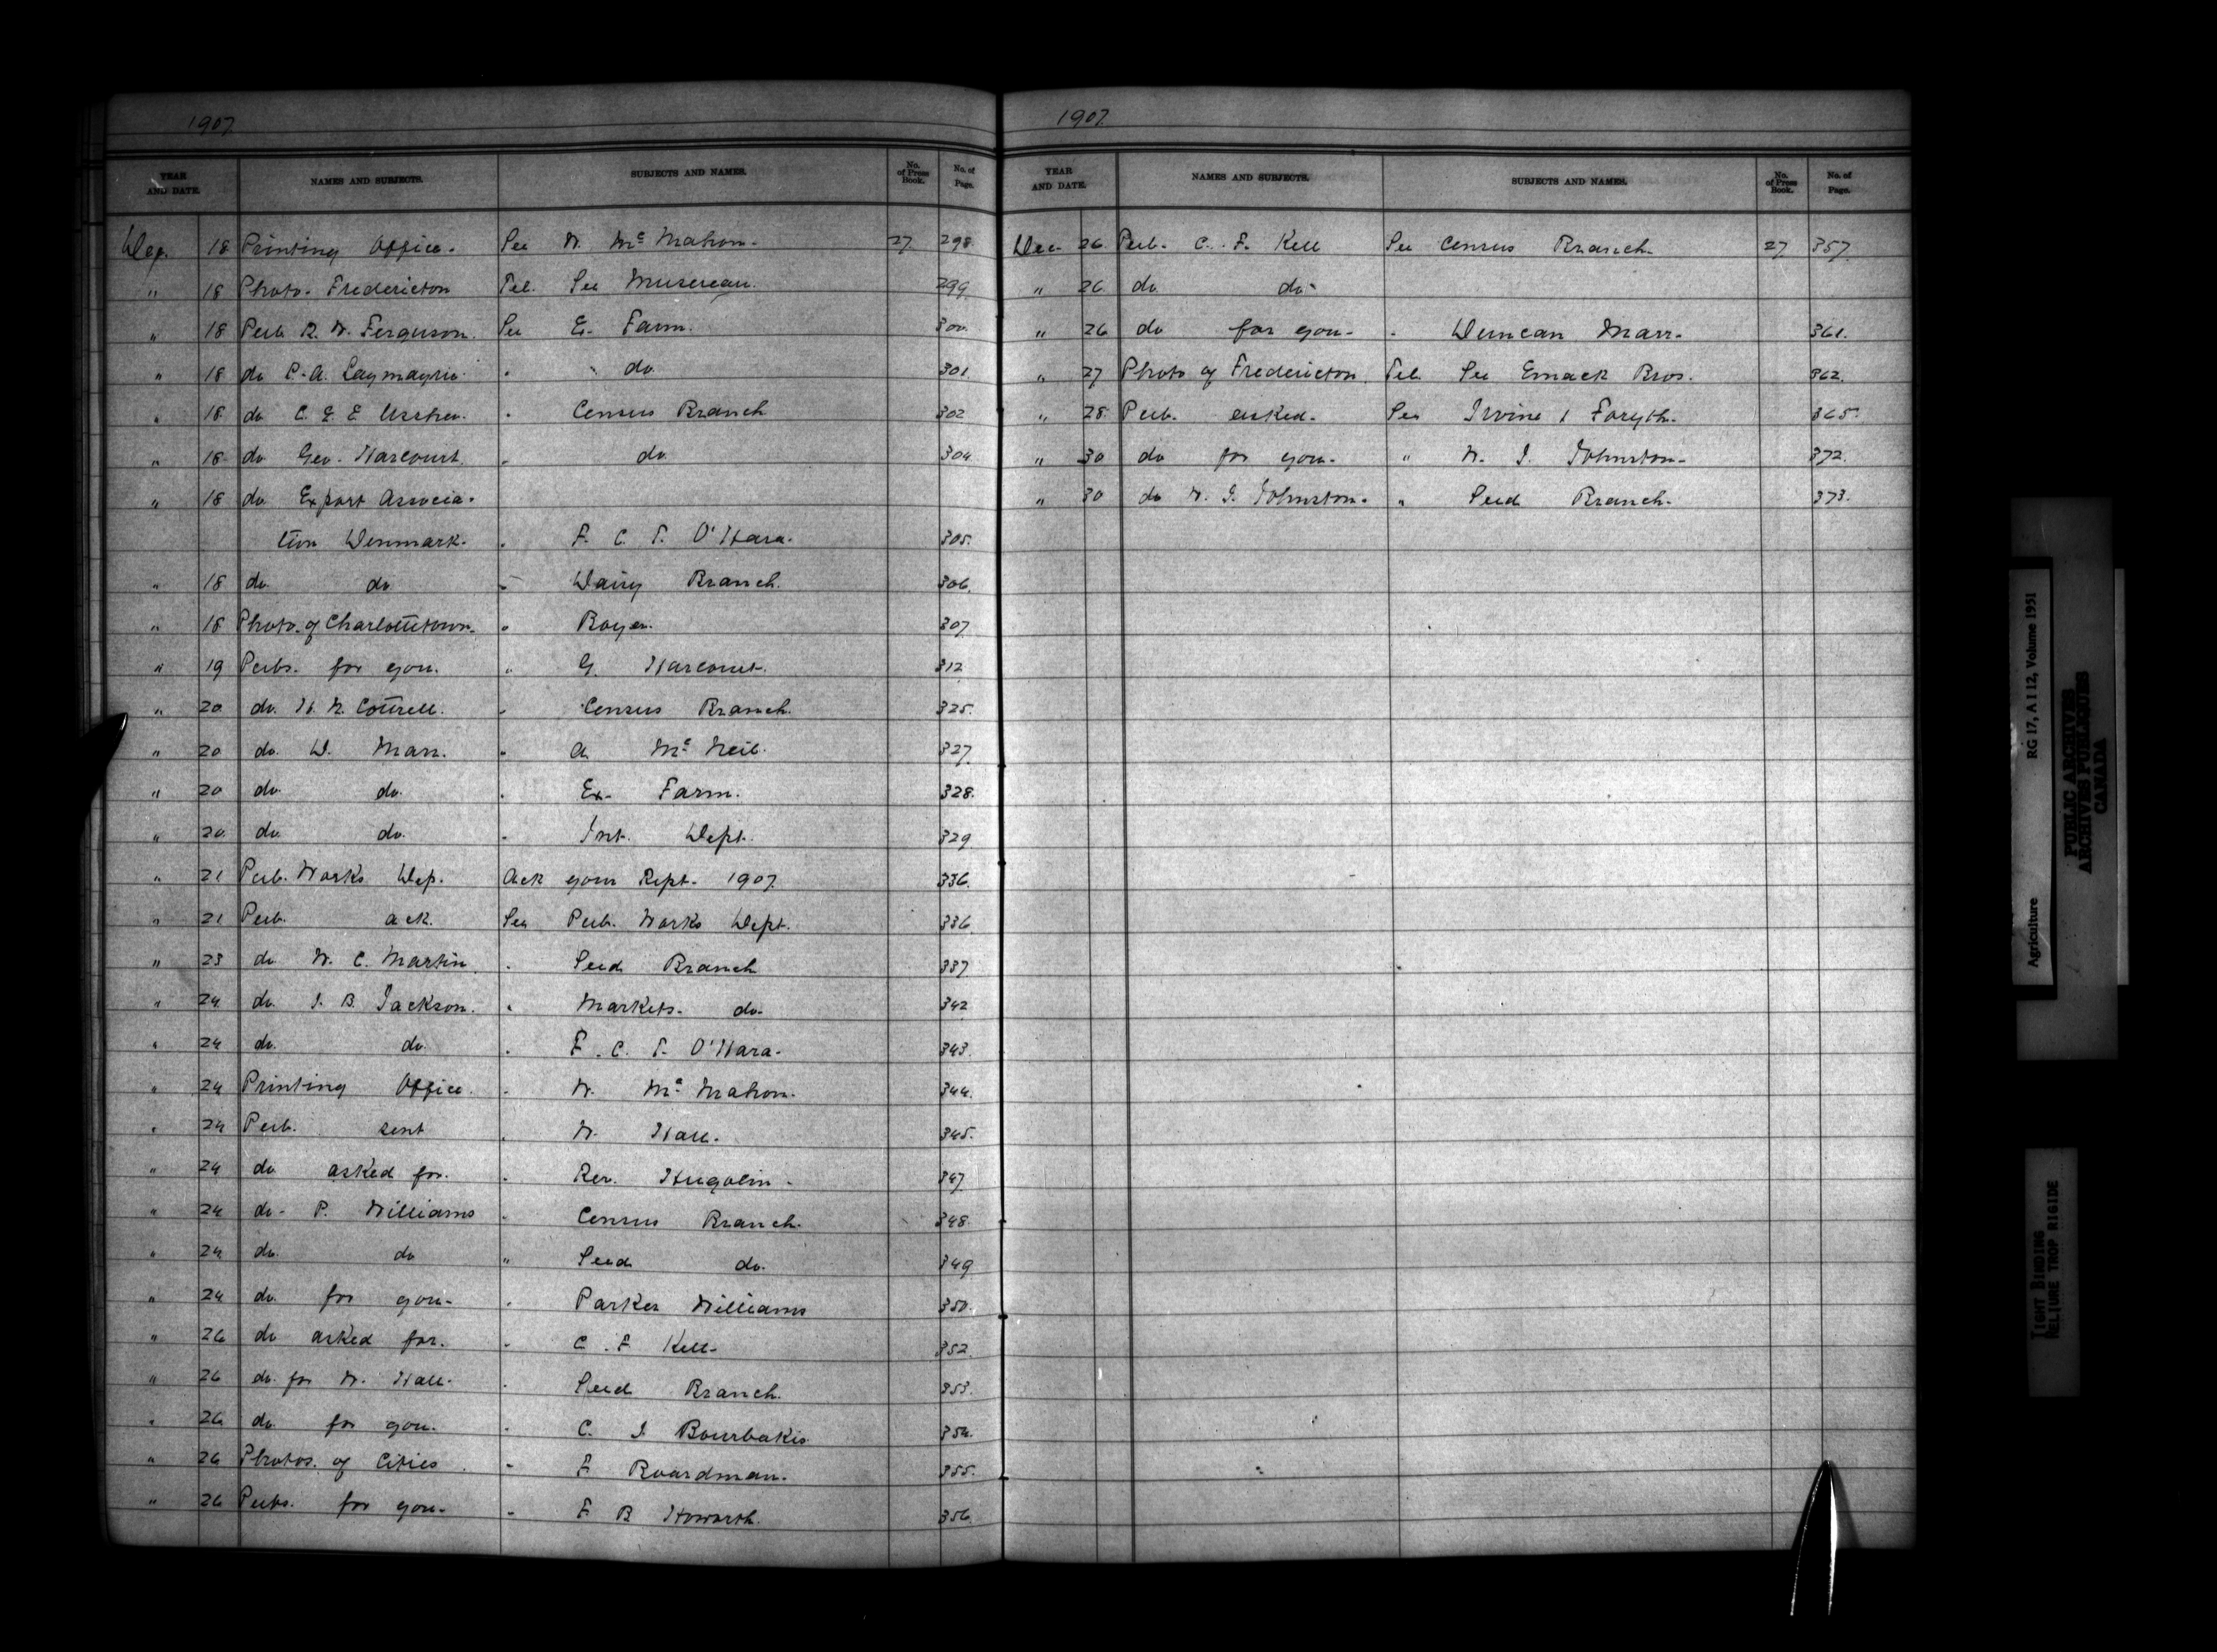 1907
YEAR AND DATE. NAMES AND SUBJECTS. SUBJECTS AND NAMES. No. of Press Book. No. of Page.
Dec. 18 Printing Office. See W. McMahon. 27 298.
" 18 Photo. Fredericton Tel. See Musereau. 299.
" 18 Pub. R. W. Ferguson. See Ex. Farm. 300.
" 18 do C. A. " do 301.
" 18 do C. E. E. Ussher. " Census Branch 302
" 18 do Geo. Harcourt. " do 304
" 18 do Export Associa-
tion Denmark. " F. C. T. O'Hara. 305.
" 18 do do. " Dairy Branch. 306.
" 18 Photo. of Charlottetown. " Boyer. 307
" 19 Pubs. for you. " G. Harcourt. 312
" 20 do. H. N. Cottrell. " Census Branch. 325.
" 20 do. D. Marr. " A McNeil. 327
" 20 do. do. " Ex. Farm. 328.
" 20 do. do. " Int. Dept. 329
" 21 Pub. Works Dep. Ack your Rept. 1907. 336.
" 21 Pub. ack. See Pub. Works Dept. 336
" 23 do W. C. Martin. " Seed Branch 337
" 24 do. J. B. Jackson. " Markets. do. 342
" 24 do. do. " F. C. T. O'Hara. 343.
" 24 Printing Office. " W. McMahon. 344.
" 24 Pub. sent " W. Hall. 345.
" 24 do asked for. " Rev. Hugolin. 347
" 24 do. P. Williams " Census Branch. 348.
" 24 do. do " Seed do. 349
" 24 do. for you. " Parker Williams 350.
" 26 do asked for. " C. F. Kell. 352.
" 26 do. for W. Hall. " Seed Branch. 353.
" 26 do for you. " C. J. Bourbakis 354.
" 26 Photos. of Cities. " F Boardman. 355.
" 26 Pubs. for you. " F B Howarth. 356.
1907.
YEAR AND DATE. NAMES AND SUBJECTS. SUBJECTS AND NAMES. No. of Press Book. No. of Page.
Dec. 26 Pub. C. F. Kell See Census Branch. 27 357.
" 26 do. do.
" 26 do for you. " Duncan Marr. 361.
" 27 Photo of Fredericton. Tel. See Emack Bros. 362.
" 28 Pub. asked. See Irvine & Forsyth. 365.
" 30 do for you. " W. J. Johnston. 372.
" 30 do W. J. Johnston. " Seed Branch. 373.
Agriculture RG 17, A I 12, Volume 1951
PUBLIC ARCHIVES
ARCHIVES PUBLIQUES
CANADA
TIGHT BINDING
RELIURE TROP RIGIDE